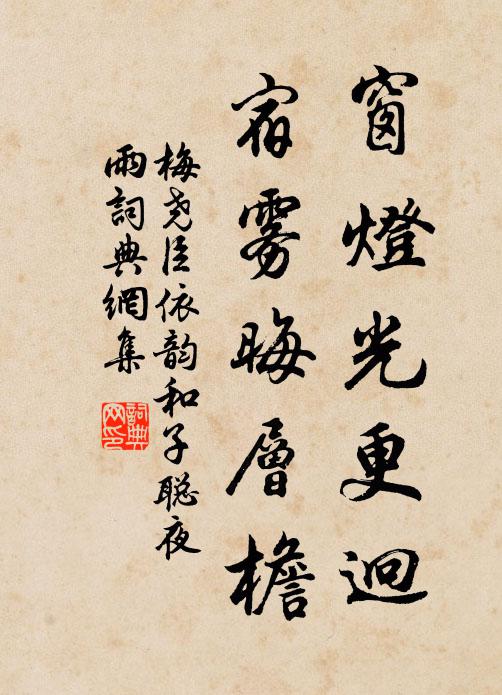 窗燈光更迥
宿雾晦層檐
梅尧臣依韵和子聪夜
雨詞典網集
詞典
网印